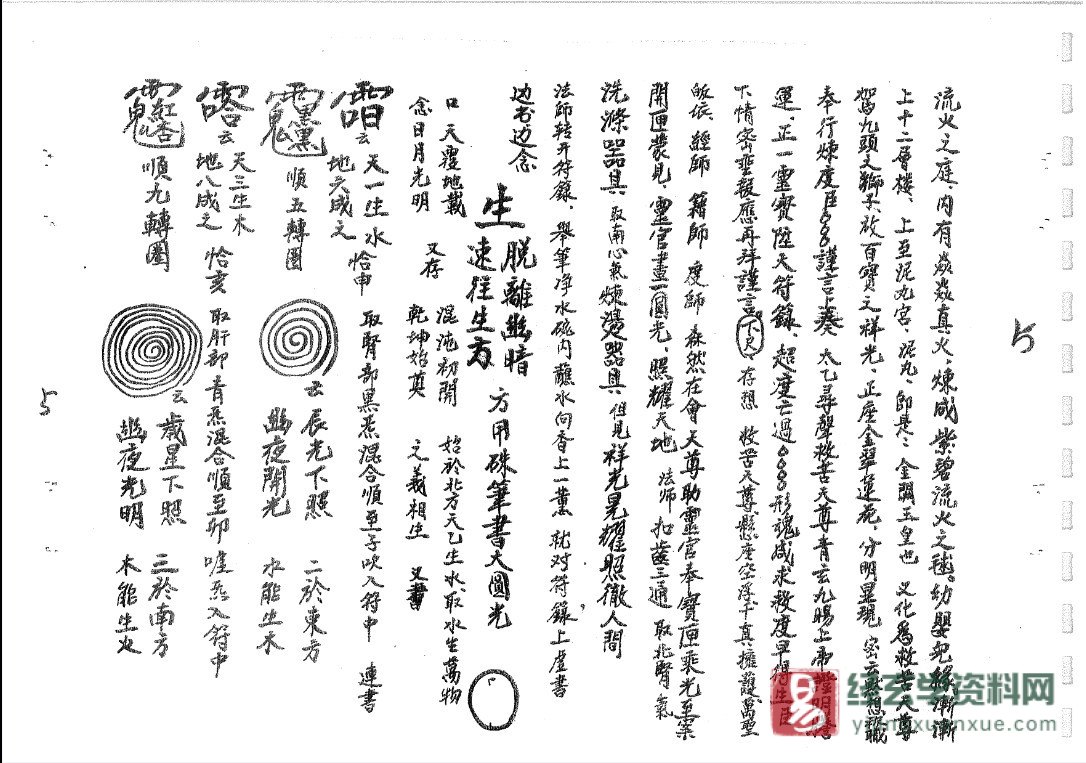 流火之庭、内有焱焱真火、煉成紫碧流火之毬。幼嬰兒緣漸漸
上十二層樓、上至泥丸宮、泥丸、即是、金闕玉皇也 又化為救苦天尊
駕九頭之獅子放百寶之祥光、正座金翠蓮花、分明显現 密云
奉行煉度臣 謹言上奏 太乙尋聲救苦天尊青玄九陽上帝 證明
運、正一靈寶陞天符籙、超度亡過 形魂咸求救度早得生
下情密 應再拜謹言 下尺 存想 救苦天尊懸座空浮千真擁護萬聖
皈依、經師 籍師 度師 森然在會 天尊助靈官奉寶匣乘光至案
開匣 見、靈官畫一圓光、照耀天地 法師 扣齒三通 取北腎氣
洗滌器具 取南心氣煉燙器具 但見祥光晃耀照徹人間
法師轉开符籙、舉筆净水碗内蘸水向香上一薰 就对符籙上虚書
边书边念
生 脱離幽暗 速往生方 方用硃筆書大圓光
口 天覆地載 念日月光明 又存 混沌初開 乾坤始奠 始於北方天乙生水、取水生萬物 之義相生 又書
云 天一生水 地六成之 恰申 取腎部黑炁混合順至子吹入符中 連書
順五轉圈 云 辰光下照 幽夜開光 二於東方 水能生木
云 天三生木 地八成之 恰亥 取肝部青炁混合順至卯噓炁入符中
順九轉圈 云 歲星下照 幽夜光明 三於南方 木能生火
5
5
易
经玄学资料网
yixuanxuexue.com